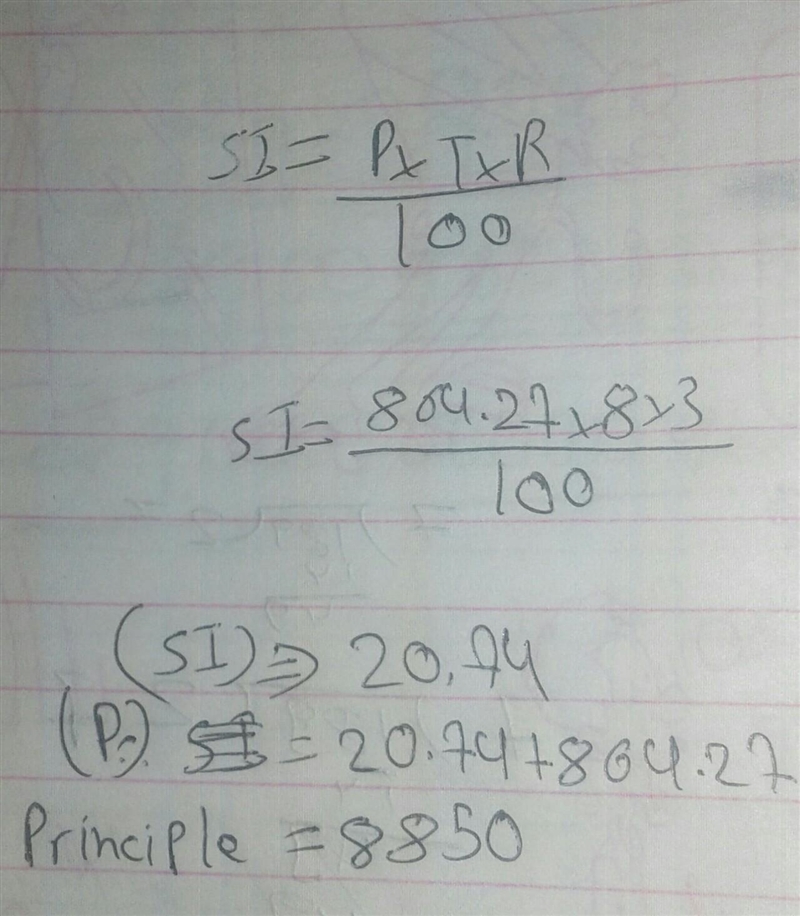 SI = P x T x R
100
SI = 804.27 x 8 x 3
100
(SI) ⇒ 20.74
(P:) = 20.74 + 804.27
Principle = 8850